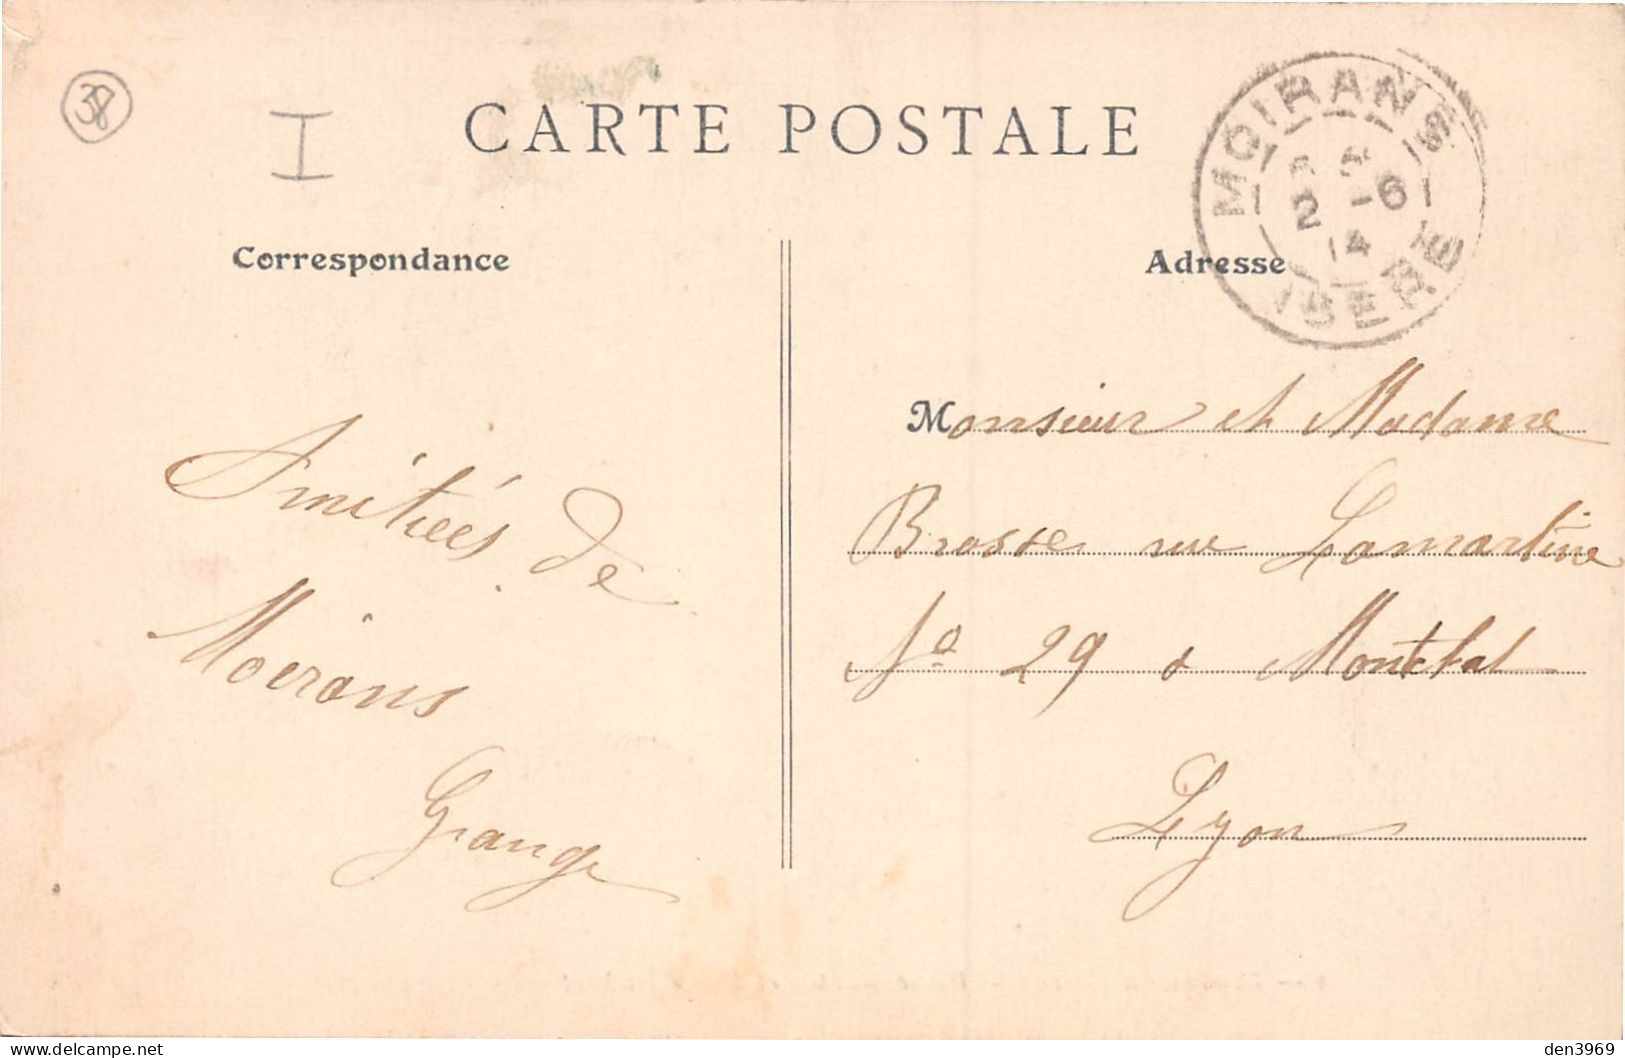 38
I
CARTE POSTALE
MOIRANS
2 -6
14
ISERE
Correspondance
Adresse
Amitiées de
Moirans
Grange
Monsieur et Madame
Brosse rue Lamartine
No 29 à Montchat
Lyon
den3969